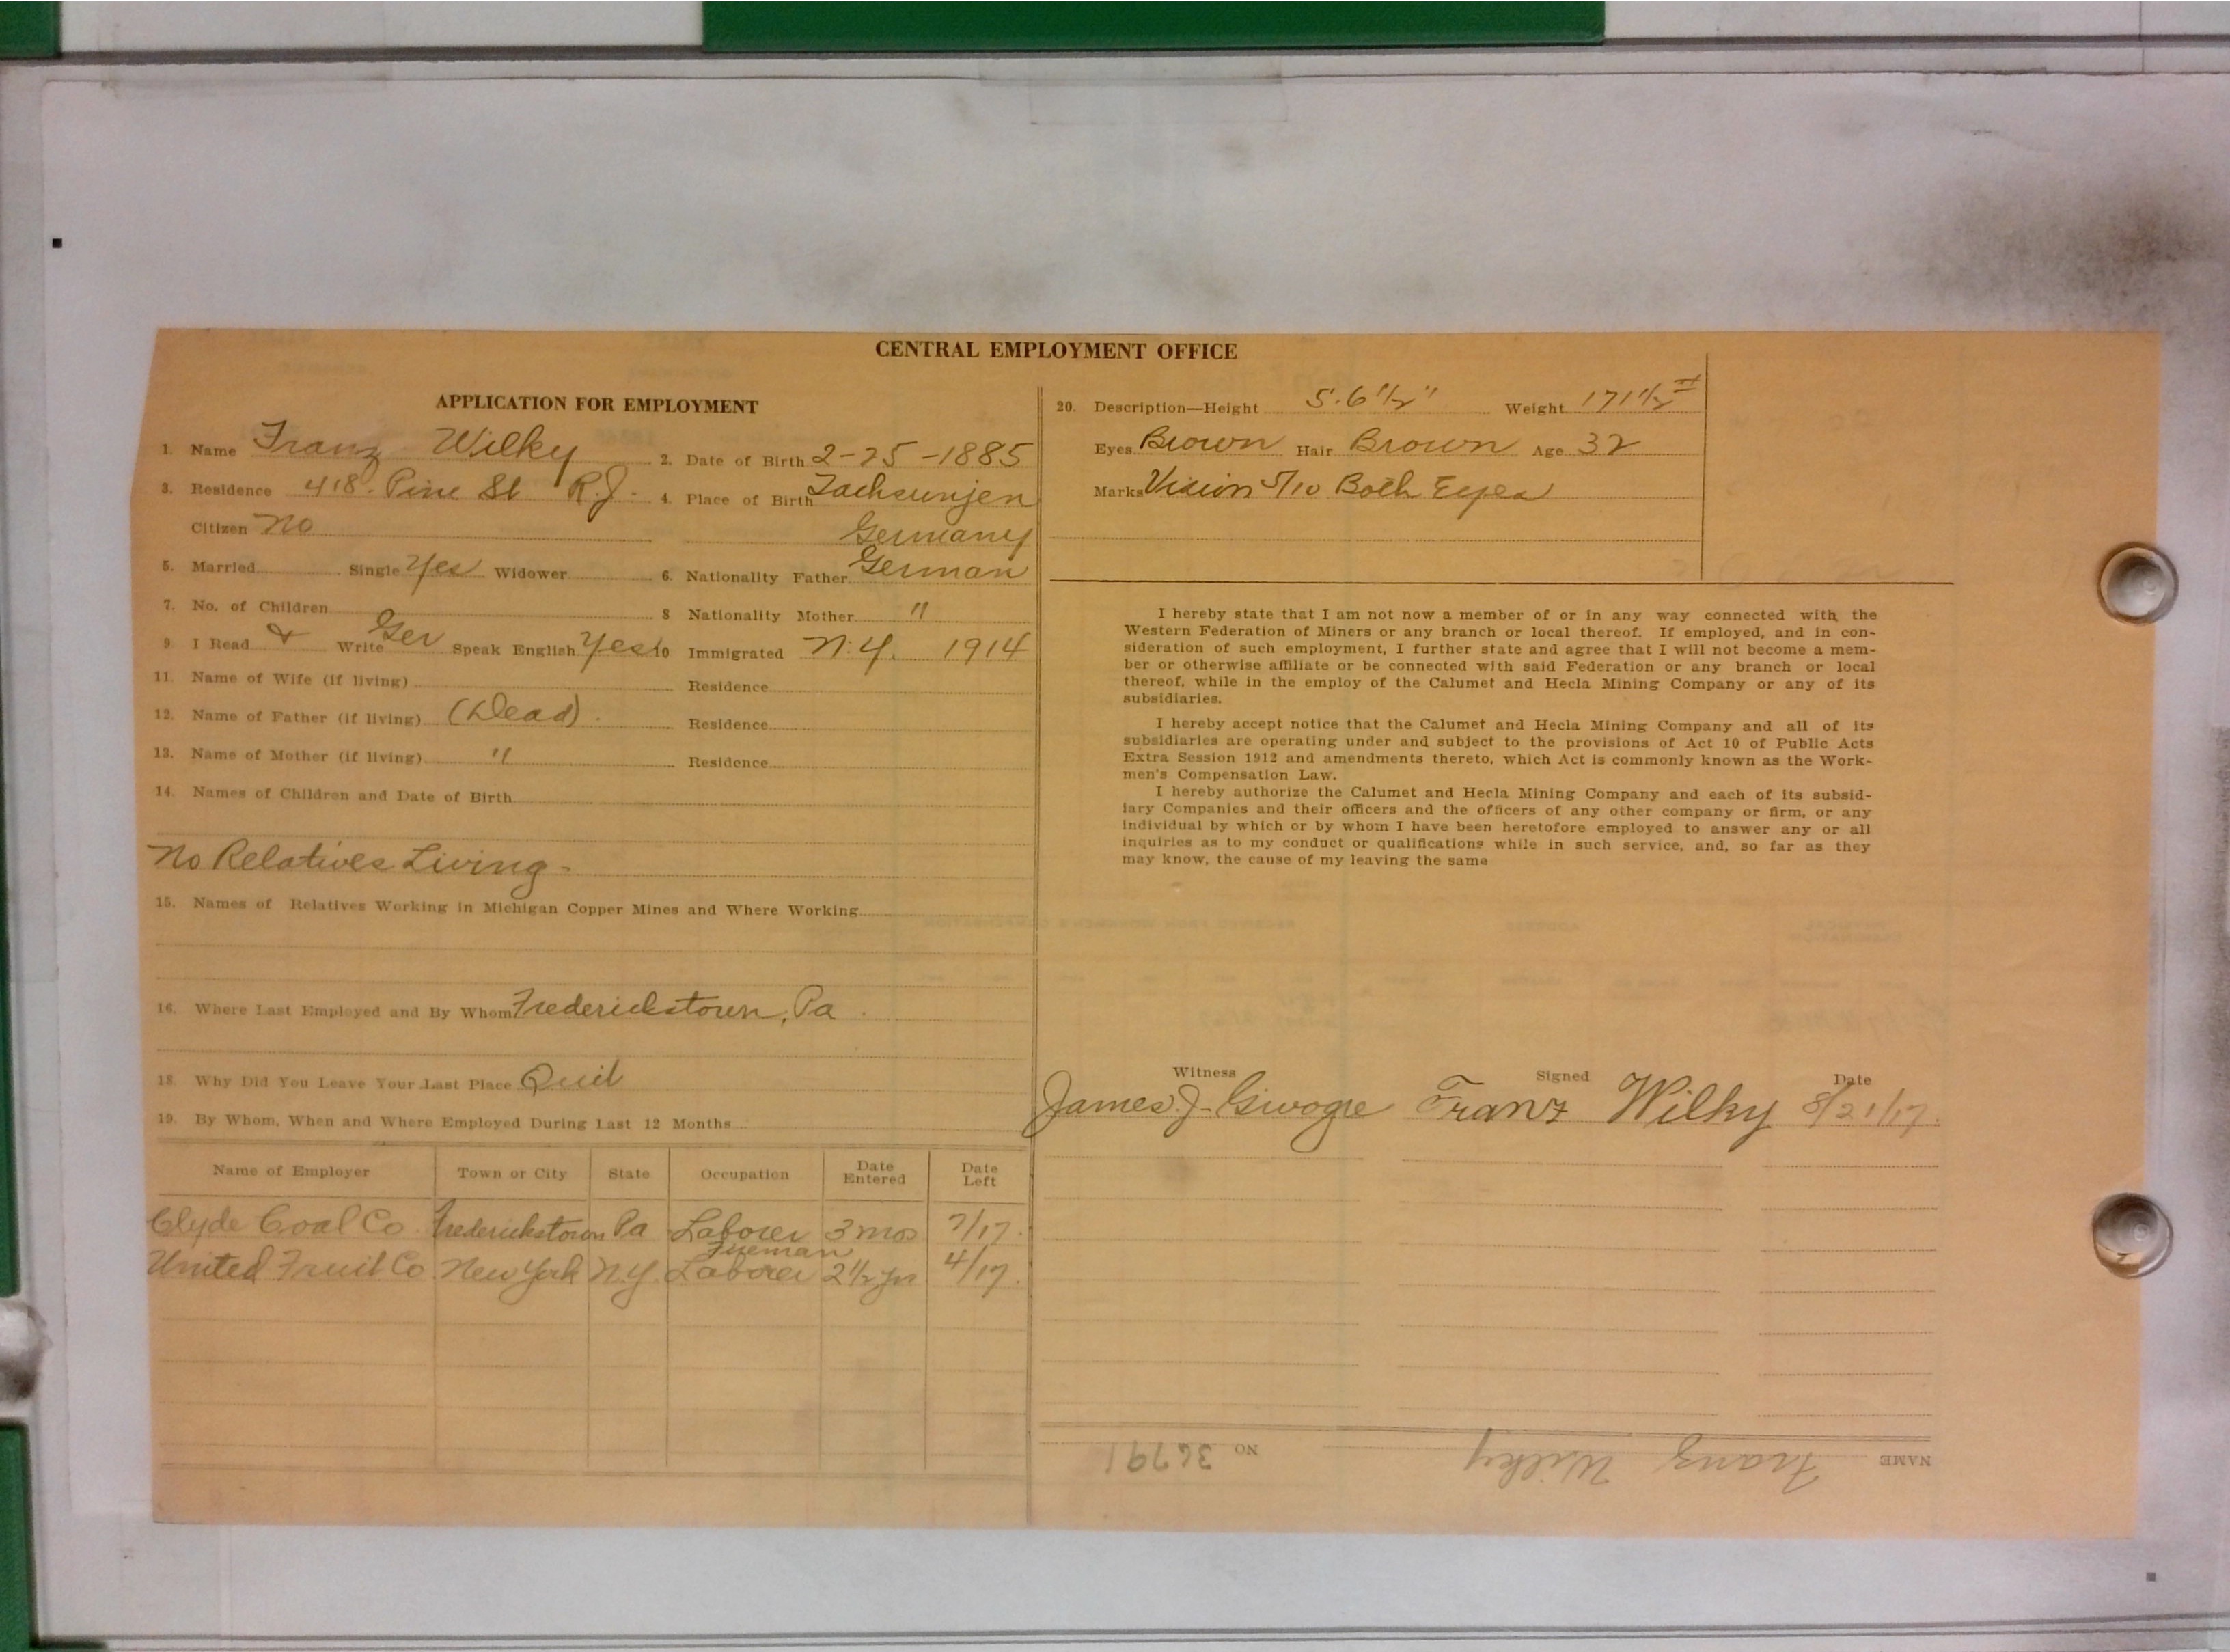 CENTRAL EMPLOYMENT OFFICE
APPLICATION FOR EMPLOYMENT
1. Name Franz Wilky 2. Date of Birth 2-25-1885
3. Residence 418- Pine St R.J. 4. Place of Birth
Citizen No Germany
5. Married Single Yes Widower 6. Nationality Father German
7. No. of Children 8 Nationality Mother "
9. I Read & Write Ger Speak English Yes 10 Immigrated N.Y. 1914
11. Name of Wife (if living) Residence
12. Name of Father (if living) (Dead). Residence
13. Name of Mother (if living) " Residence
14. Names of Children and Date of Birth
No Relatives Living-
15. Names of Relatives Working in Michigan Copper Mines and Where Working
16. Where Last Employed and By Whom Frederickstown, Pa.
18. Why Did You Leave Your Last Place Quit
19. By Whom, When and Where Employed During Last 12 Months
Name of Employer Town or City State Occupation Date Entered Date Left
Clyde Coal Co Frederickstown Pa Laborer 3 mos 7/17.
Fireman
United Fruit Co. New York N.Y. Laborer 2 1/2 yrs 4/17.
20. Description—Height 5.6 1/2" Weight 171 1/2 #
Eyes Brown Hair Brown Age 32
Marks Vision 5/10 Both Eyes
I hereby state that I am not now a member of or in any way connected with, the
Western Federation of Miners or any branch or local thereof. If employed, and in con-
sideration of such employment, I further state and agree that I will not become a mem-
ber or otherwise affiliate or be connected with said Federation or any branch or local
thereof, while in the employ of the Calumet and Hecla Mining Company or any of its
subsidiaries.
I hereby accept notice that the Calumet and Hecla Mining Company and all of its
subsidiaries are operating under and subject to the provisions of Act 10 of Public Acts
Extra Session 1912 and amendments thereto, which Act is commonly known as the Work-
men's Compensation Law.
I hereby authorize the Calumet and Hecla Mining Company and each of its subsid-
iary Companies and their officers and the officers of any other company or firm, or any
individual by which or by whom I have been heretofore employed to answer any or all
inquiries as to my conduct or qualifications while in such service, and, so far as they
may know, the cause of my leaving the same
Witness Signed Date
James J. Franz Wilky 8/21/17.
NAME Franz Wilky NO 36791